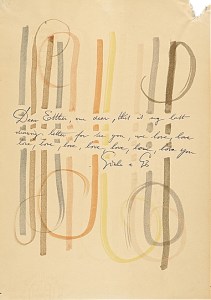 Dear Esther, our dear, this is my last
drawing letter for for you, we love, love
love, love, love, love, love, love, love you
Gisèle &